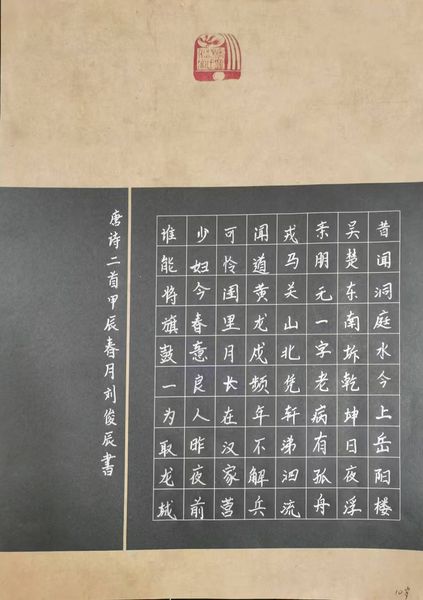 昔闻洞庭水今上岳阳楼
吴楚东南坼乾坤日夜浮
亲朋无一字老病有孤舟
戎马关山北凭轩涕泗流
闻道黄龙戍频年不解兵
可怜闺里月长在汉家营
少妇今春意良人昨夜前
谁能将旗鼓一为取龙城
唐诗二首甲辰春月刘俊辰書
10岁